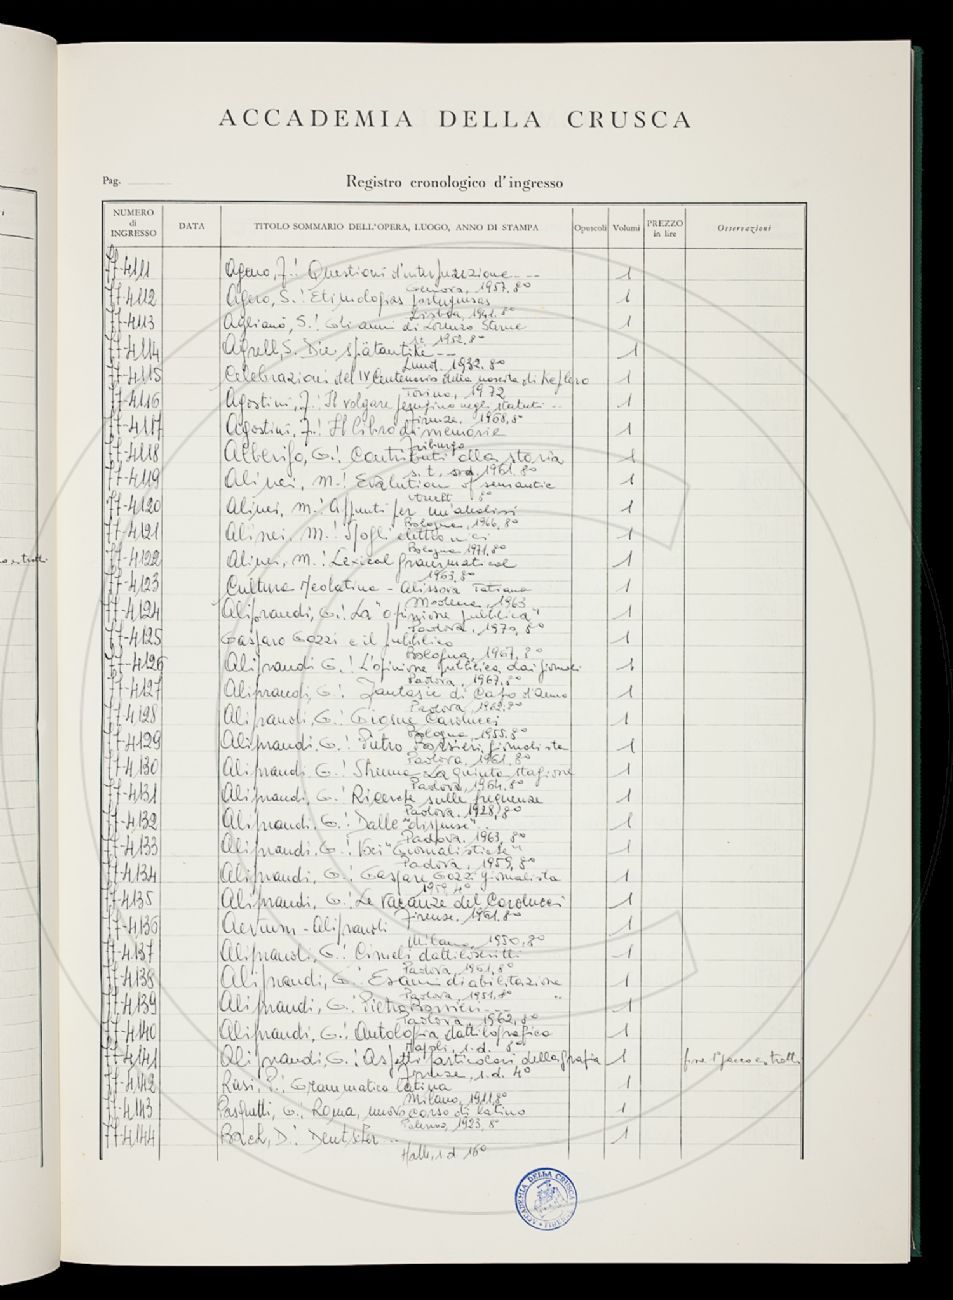 ACCADEMIA DELLA CRUSCA
Pag.
Registro cronologico d'ingresso
NUMERO di INGRESSO
DATA
TITOLO SOMMARIO DELL'OPERA, LUOGO, ANNO DI STAMPA
Opuscoli
Volumi
PREZZO in lire
Osservazioni
77-4111 Ageno, F.: Questioni d'interpunzione... 1
Genova, 1957. 8°
77-4112 Agero, S.: Etimologias portuguesas 1
Lisboa, 1941. 8°
77-4113 Aglianò, S.: Gli anni di Lorenzo Stecchetti 1
1952. 8°
77-4114 Agrell, S. Die spätantike -- 1
Lund. 1932. 8°
77-4115 Celebrazioni del IV Centenario della nascita di Keplero 1
Torino, 1972
77-4116 Agostini, F.: Il volgare perugino negli statuti -- 1
Firenze, 1968, 8°
77-4117 Agostini, F.: Il libro di memorie 1
Friburgo
77-4118 Alberigo, G.: Contributi alla storia 1
1961. 8°
77-4119 Alinei, M.: Evolution of semantic 1
8°
77-4120 Alinei, M.: Appunti per un'analisi 1
Bologna, 1966, 8°
77-4121 Alinei, M.: Spogli elettronici 1
Bologna 1971, 8°
77-4122 Alinei, M.: Lexical grammatical 1
1963. 8°
77-4123 Cultura Neolatina - Alissova Tatiana 1
Modena, 1963
77-4124 Aliprandi, G.: La "opinione pubblica" 1
Padova, 1970, 8°
77-4125 Gasparo Gozzi e il pubblico 1
Bologna, 1967, 8°
77-4126 Aliprandi G.: L'opinione pubblica dai giornali 1
Padova, 1967, 8°
77-4127 Aliprandi, G.: Fantasie di Capo d'anno 1
Padova, 1962, 8°
77-4128 Aliprandi, G.: Giosue Carducci 1
Bologna, 1955. 8°
77-4129 Aliprandi, G.: Pietro Borsieri giornalista 1
Padova, 1961. 8°
77-4130 Aliprandi, G.: Strenna La quinta stagione 1
Padova, 1964. 8°
77-4131 Aliprandi, G.: Ricerche sulle frequenze 1
Padova. 1928, 8°
77-4132 Aliprandi, G.: Dalle "dispense" 1
Padova. 1963, 8°
77-4133 Aliprandi, G.: Voci "Giornalistiche" 1
Padova, 1959, 8°
77-4134 Aliprandi, G.: Gaspare Gozzi giornalista 1
1959. 40
77-4135 Aliprandi, G.: Le vacanze del Carducci 1
Firenze, 1961. 8°
77-4136 Aevum - Aliprandi 1
Milano, 1950, 8°
77-4137 Aliprandi, G.: Cimeli dattiloscritti 1
Padova, 1961, 8°
77-4138 Aliprandi, G.: Esami di abilitazione 1
Padova, 1951, 8°
77-4139 Aliprandi, G.: Pietro Borsieri -- 1
Padova, 1962, 8°
77-4140 Aliprandi, G.: Antologia dattilografica 1
Napoli, s.d. 8°
77-4141 Aliprandi, G.: Aspetti particolari della grafia 1 fine 1° pacco estratti
Firenze, s.d. 4°
77-4142 Rasi, P.: Grammatica latina 1
Milano, 1911, 8°
77-4143 Pasquetti, G.: Roma, nuovo corso di latino 1
Palermo, 1923, 8°
77-4144 Bach, D.: Deutscher -- 1
Halle, s.d 16°
ACCADEMIA DELLA CRUSCA